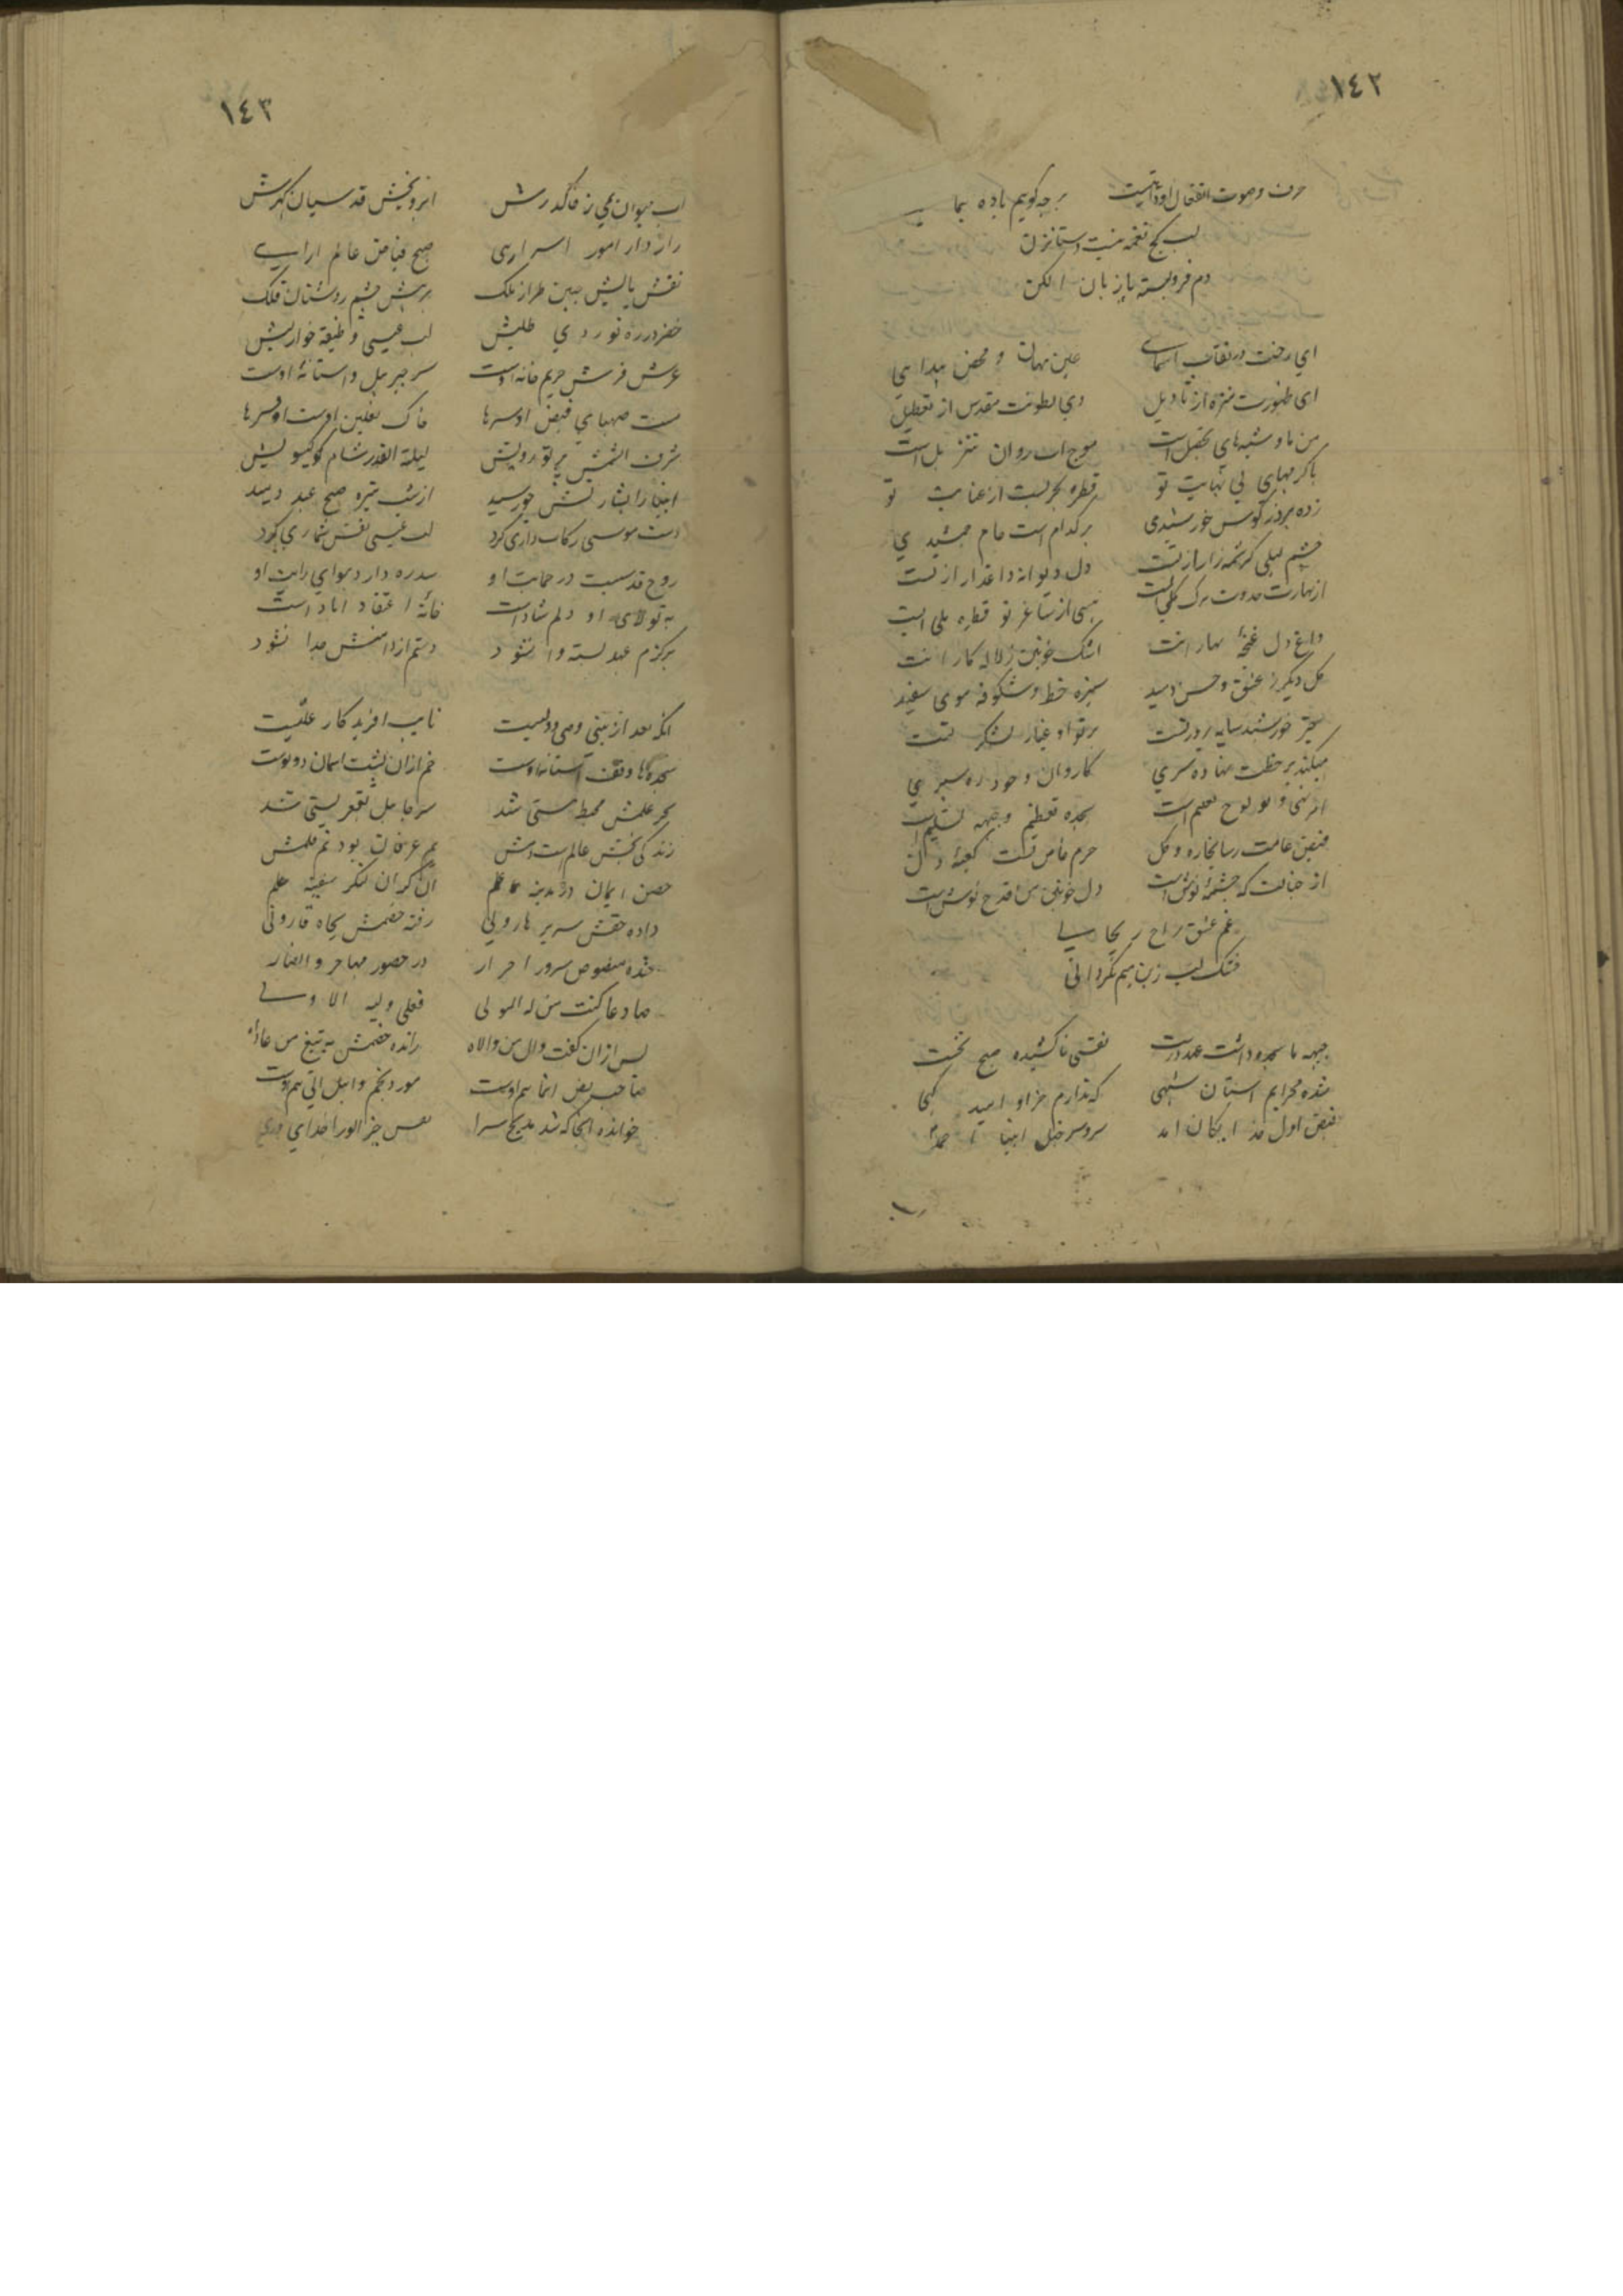 ١٤٢
حرف وصوت انتقال اودانیست برچه کویم باده بما
لب کج نغمه نیست دستانزن
دم فروبسته با زبان الکن
ای رخت در نقاب اسمای عین نهان و محض پیدایی
ای ظهورت منزه از تاویل وی بطونت مقدس از تعطیل
من و ما و است موج اب روان است
با کرمهای بی نهایت تو قطره بحریست از عنایت تو
زده بر در کوس خورشیدی هر کدام است جام جمشیدی
چشم لیلی کرشمه زار از تست دل دیوانه داغدار از تست
از بهارت حدوث برک کلی است می از ساغر تو قطره ملی است
داغ دل غنچه بهارانت اشک خونین لاله کارانت
کل دیکر ز عشق و حسن دمید سبزه خط و شکوفه موی سفید
چتر خورشید سایه پرور تست پرتو او غبار لشکر تست
میکند بر خطت نهاده سری کاروان وجود ره سپری
از نبی و لوح تعلیم است سجده تعظیم و جبهه تسلیم است
فیض عامت رسا بخار و کل حرم خاص تست کعبه دل
از خیالت که چشمه نوش است دل خونین من قدح نوش است
غم عشق راح ریحانی
خشک لب زین میم نکردانی
جبهه ما سجود داشت بر درت نفسی نا کشیده صبح نخست
شده محرابم استان شهی که ندارم جز او امید کهی
فیض اول خدایکان امد سرو سرخیل انبیا احمد
١٤٣
اب حیوان نمی ز خاک درش ابروبخش قدسیان کهرش
رازدار امور اسراری صبح فیاض عالم ارایی
نقش پایش جبین طراز ملک برهش چشم روشنان فلک
خضر در ره نوردی طلبش لب عیسی وظیفه خوار لبش
عرش فرش حریم خانه اوست سر جبریل و استانه اوست
مست صهبای فیض او سرها خاک نعلین اوست افسرها
شرف الشمس پرتو رویش لیلة القدر شام کیسویش
انبیا را بشارتش چو رسید از شب تیره صبح عید دمید
دست موسی رکاب داری کرد لب عیسی نفس شماری کرد
روح قدسیست در حمایت او سدره دار و هوای رایت او
به تولای او دلم شاد است خانه اعتقاد اباد است
هرکزم عهد بسته وا نشود دستم از دامنش جدا نشود
انکه بعد از نبی وصی و ولیست نایب افریدکار علیست
سجده ها وقف آستانه اوست خم ازان پشت اسمان دو توست
بحر علمش محیط هستی شد سر جاهل بقعر پستی شد
زندکی بخش عالم است دمش یم عرفان بود نم قلمش
حصن ایمان در مدینه علم ان کران لنکر سفینه حلم
داده حقش سریر هارونی رفته خصمش بچاه قارونی
شده منصوص سرور احرار در حضور مهاجر و انصار
صاد عا کنت من له المولی فعلی ولیه الاولی
پس ازان کفت وال من والاه رانده خصمش به تیغ من عاداه
صاحب نص انما هم اوست مورد نجم و اهل اتی هم اوست
خوانده انجا که شد مدیح سرا نفس خیر الورا خدای ورا